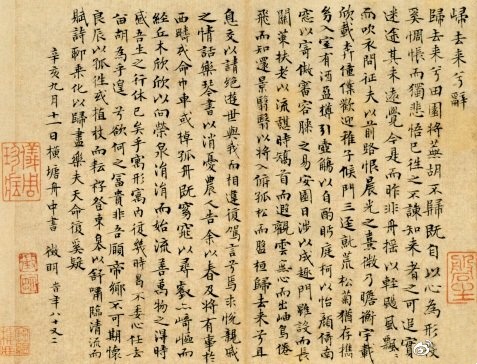 歸去来兮辭
歸去来兮田園將蕪胡不歸既自以心為形役
奚惆悵而獨悲悟已往之不諫知来者之可追寔
迷途其未遠覺今是而昨非舟摇以輕颺風飄
而吹衣問征夫以前路恨晨光之熹微乃瞻衡宇載
欣載奔僮僕歡迎稚子候門三逕就荒松菊猶存攜
幼入室有酒盈罇引壺觴以自酌眄庭柯以怡顏倚南
窓以寄傲審容膝之易安園日涉以成趣門雖設而長
關策扶老以流憩時矯首而遐觀雲無心而出岫鳥倦
飛而知還景翳翳以將入撫孤松而盤桓歸去来兮且
息交以請絕遊世與我而相違復駕言兮焉求悅親戚
之情話樂琴書以消憂農人告余以春及將有事於
西疇或命巾車或棹孤舟既窈窕以尋壑亦崎嶇而
經丘木欣欣以向榮泉涓涓而始流善萬物之得時
感吾生之行休已矣乎寓形宇内復幾時曷不委心任去
留胡為乎遑遑兮欲何之富貴非吾願帝鄉不可期懷
良辰以孤往或植杖而耘耔登東皋以舒嘯臨清流而
賦詩聊乘化以歸盡樂夫天命復奚疑
辛亥九月十一日橫塘舟中書 徵明 時年八十又二